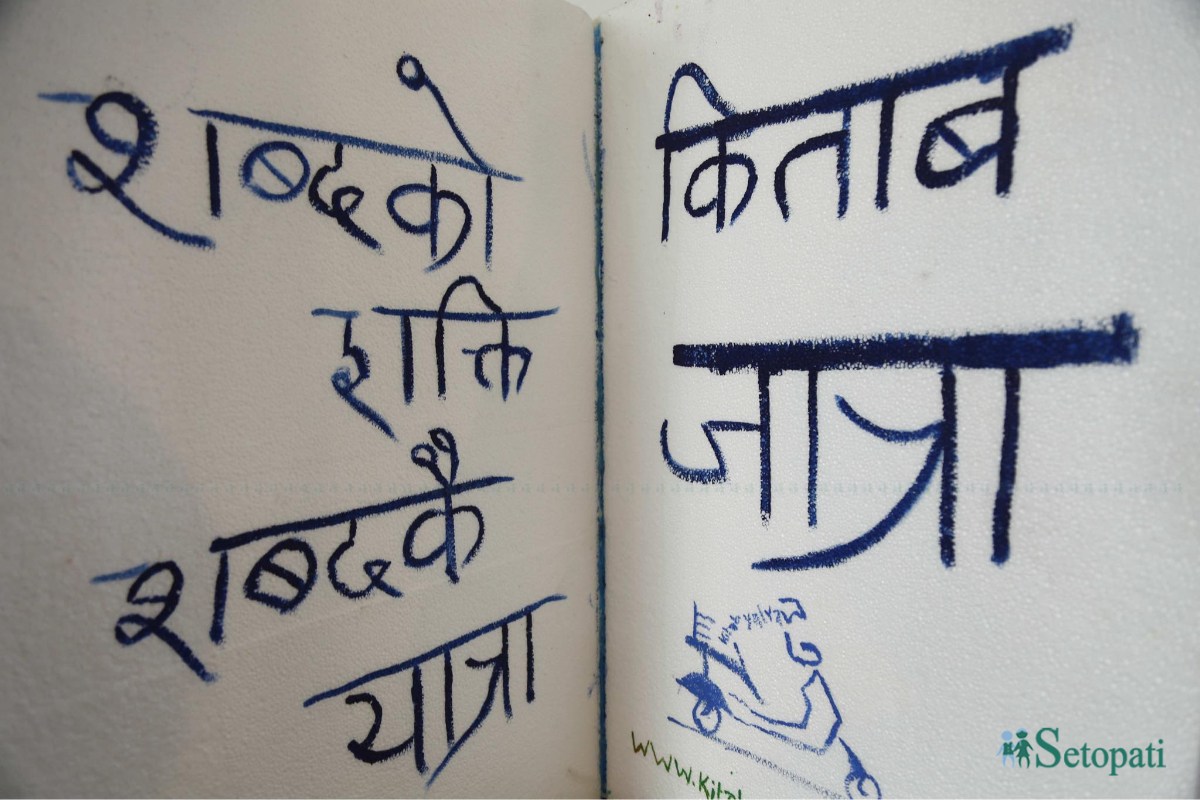 शब्दको
शक्ति
शब्दकै
यात्रा
किताब
जात्रा
Setopati